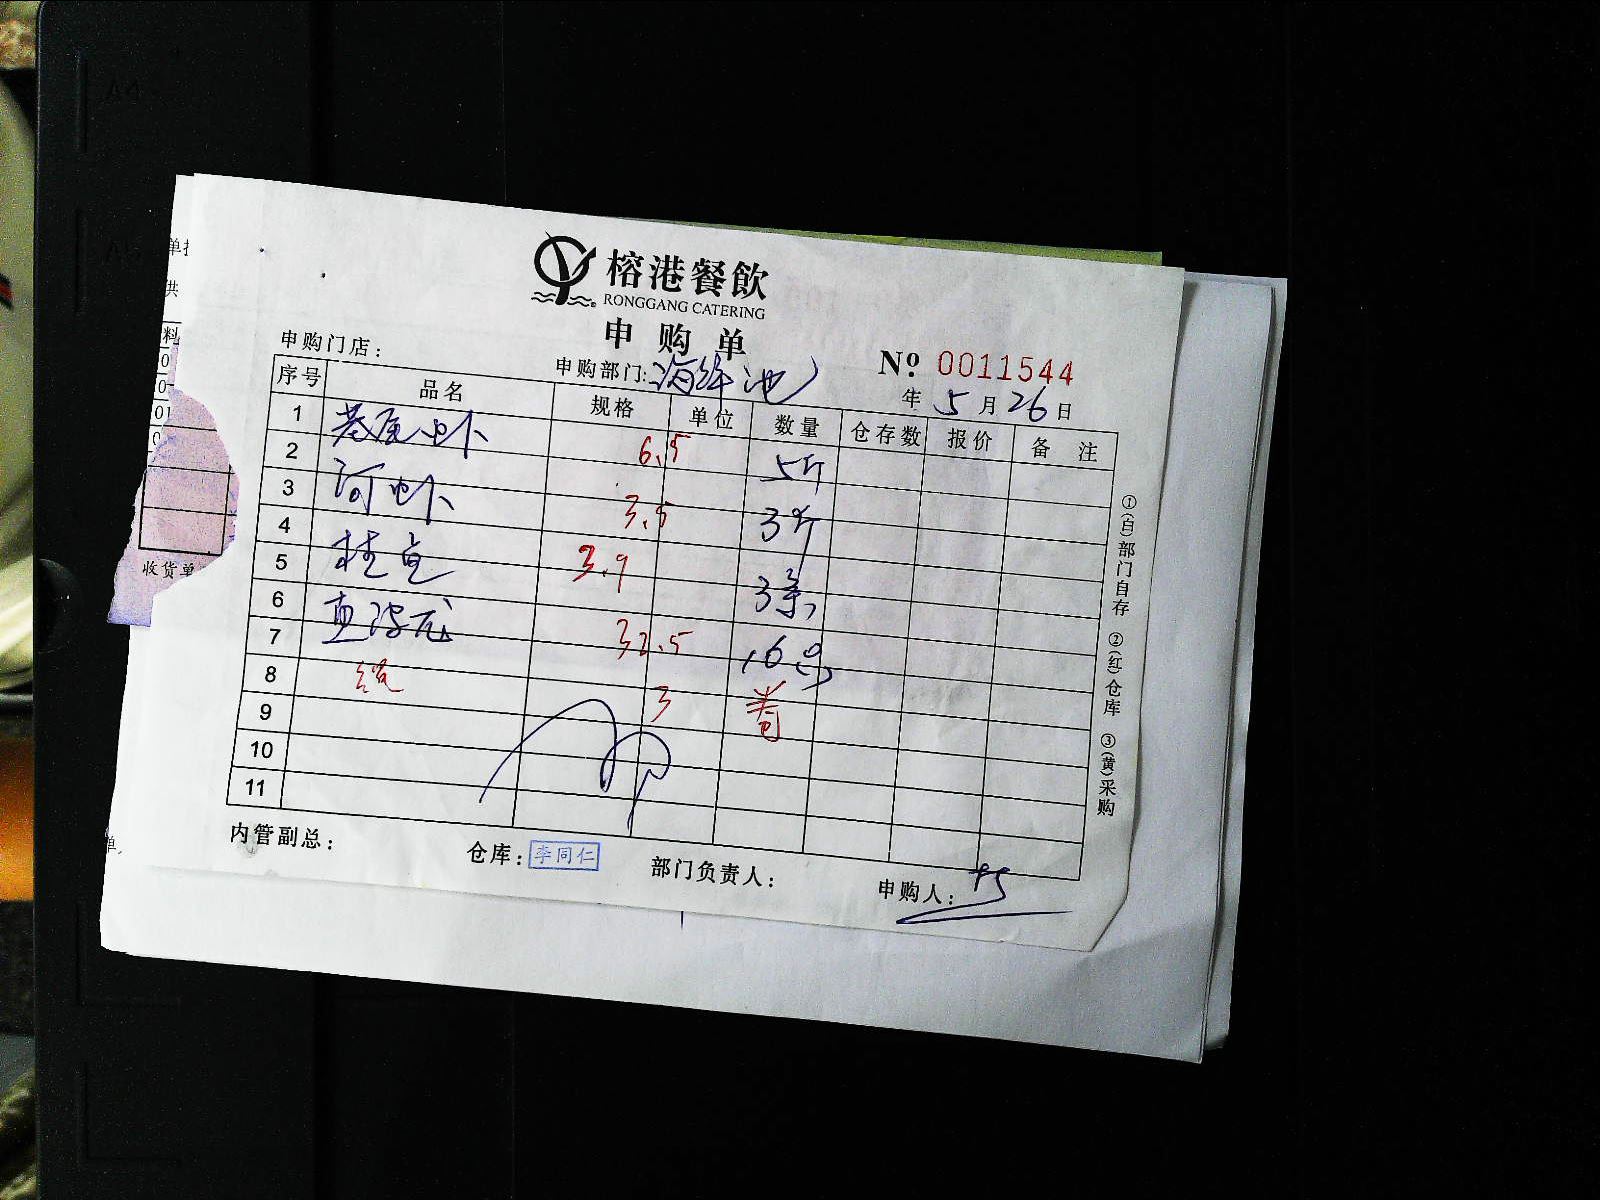 榕港餐飲
RONGGANG CATERING
申购单
申购门店：
申购部门：海鲜池
№ 0011544
年 5 月 26 日
序号 品名 规格 单位 数量 仓存数 报价 备注
1 基尾虾 6.5 5斤
2
3 河虾 3.5 3斤
4
5 桂鱼 3.9 3条
6
7 32.5
8 3
9
10
11
内管副总：
仓库：李同仁
部门负责人：
申购人：
①(白)部门自存 ②(红)仓库 ③(黄)采购
收货单